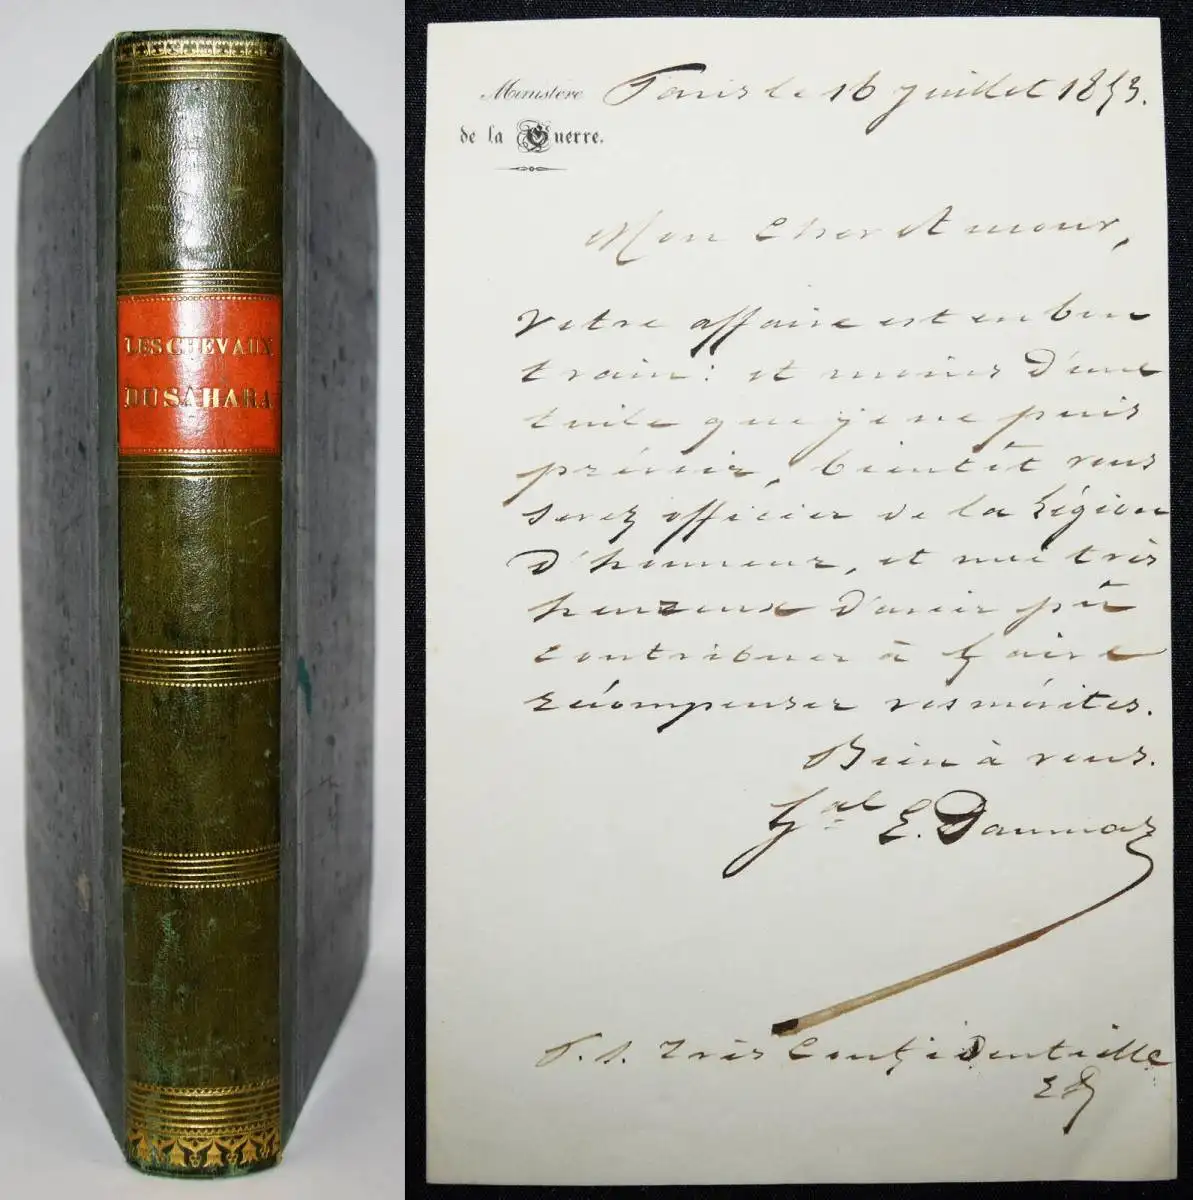 LES CHEVAUX
DU SAHARA
Ministère
de la Guerre.
Paris le 16 juillet 1853.
Mon Cher Amour,
Votre affaire est en bon
train : et moins d'une
tuile que je ne puis
prévoir, bientôt vous
serez officier de la Légion
d'honneur, et moi très
heureux d'avoir pû
contribuer à faire
récompenser vos mérites.
Bien à vous.
Gal E. Daumas
P. S. Très Confidentielle
ED